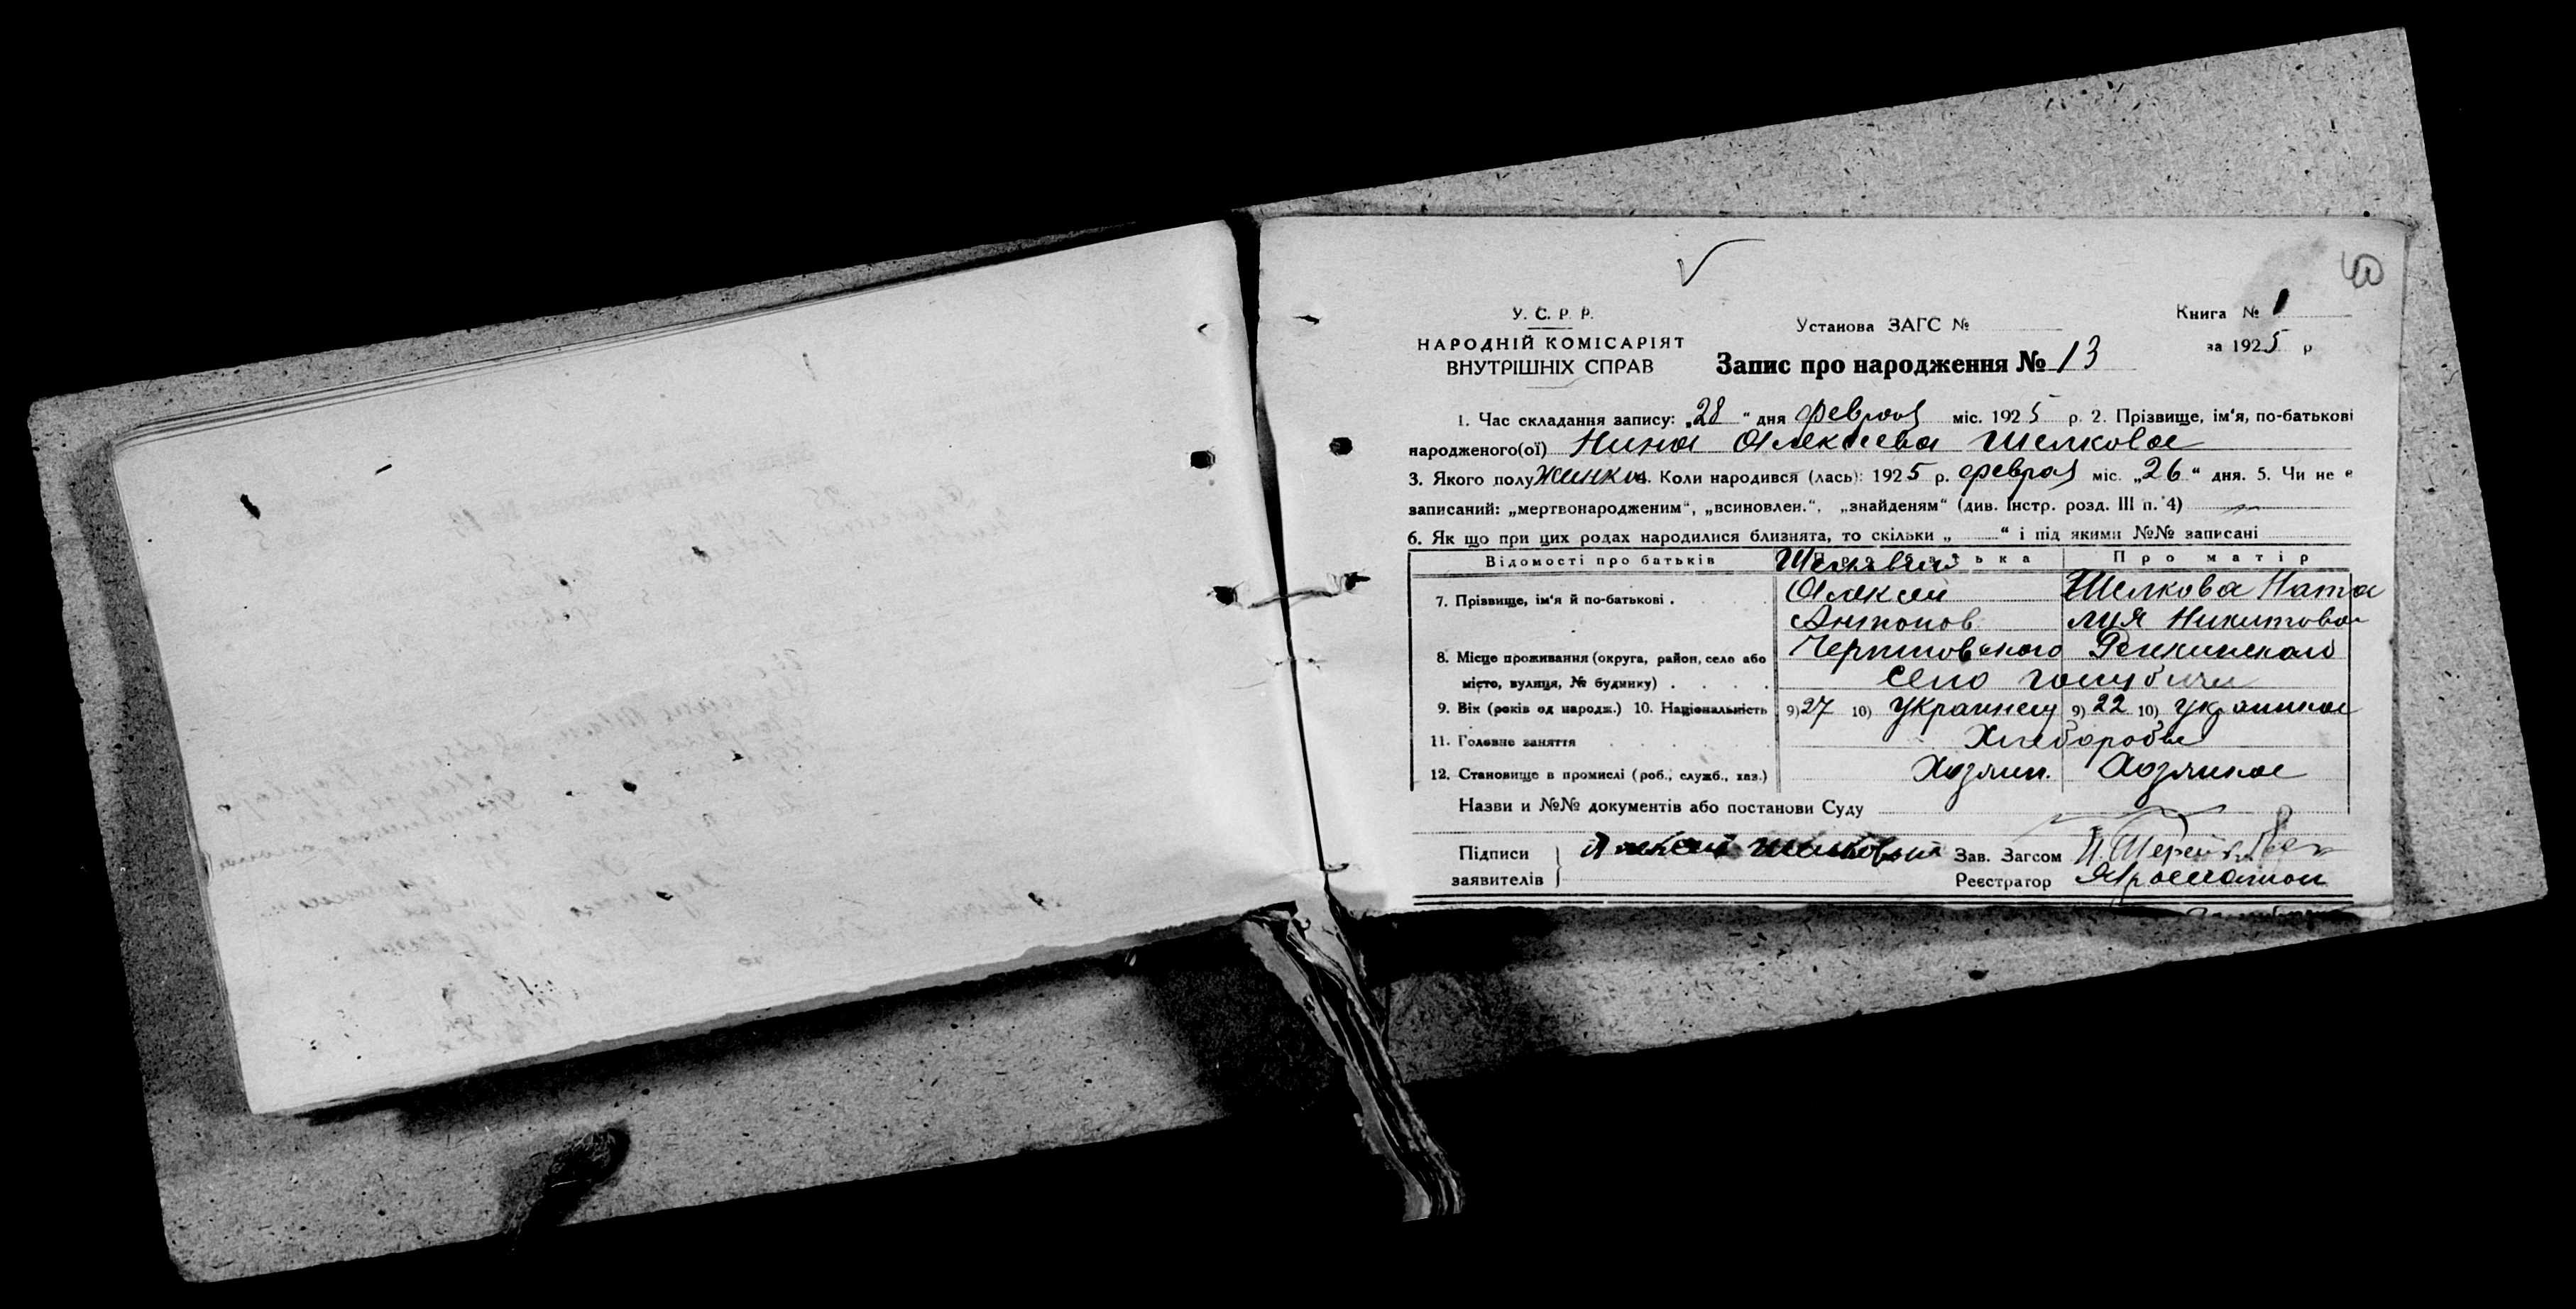 50
У. С. Р. Р.
НАРОДНІЙ КОМІСАРІЯТ
ВНУТРІШНІХ СПРАВ
Установа ЗАГС №
Книга № 1
за 1925 р
Запис про народження № 13
1. Час складання запису: „28“ дня февраля міс. 1925 р. 2. Прізвище, ім‘я, по-батькові
народженого(ої) Нина Алексеева Шелковая
3. Якого полу Жинки 4. Коли народився (лась): 1925 р. февраля міс. „26“ дня. 5. Чи не є
записаний: „мертвонародженим“, „всиновлен.“, „знайденям“ (див. Інстр. розд. III п. 4)
6. Як що при цих родах народилися близнята, то скільки „ “ і під якими №№ записані
Відомості про батьків Про батька Про матір
7. Прізвище, ім‘я й по-батькові . Алексей Шелкова Ната
Антонов лия Никитовна
8. Місце проживання (округа, район, село або
місто, вулиця, № будинку) . . . . село
9. Вік (років од народж.) 10. Національність 9) 27 10) Украинец 9) 22 10) украинка
11. Головне заняття . . . . Хлеборобы
12. Становище в промислі (роб., служб., хаз.) Хозяин. Хозяйка
Назви и №№ документів або постанови Суду
Підписи Алексей Шелковый Зав. Загсом
заявителів Реєстратор